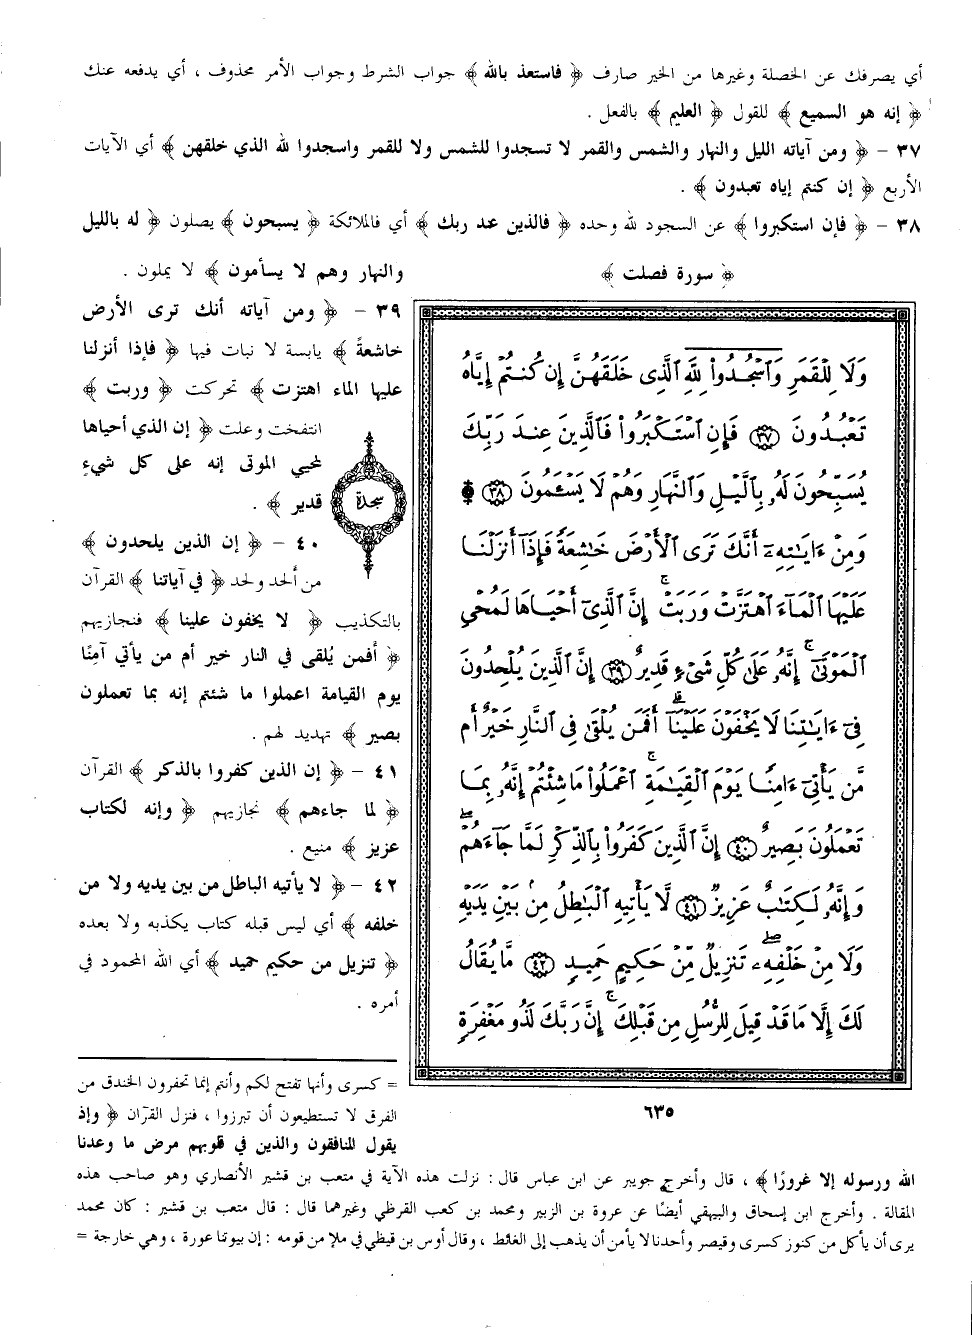 أي يصرفك عن الخصلة وغيرها من الخير صارف ﴿ فاستعذ بالله ﴾ جواب الشرط وجواب الأمر محذوف ، أي يدفعه عنك
﴿ إنه هو السميع ﴾ للقول ﴿ العليم ﴾ بالفعل .
٣٧ - ﴿ ومن آياته الليل والنهار والشمس والقمر لا تسجدوا للشمس ولا للقمر واسجدوا لله الذي خلقهن ﴾ أي الآيات
الأربع ﴿ إن كنتم إياه تعبدون ﴾ .
٣٨ - ﴿ فإن استكبروا ﴾ عن السجود لله وحده ﴿ فالذين عند ربك ﴾ أي فالملائكة ﴿ يسبحون ﴾ يصلون ﴿ له بالليل
﴿ سورة فصلت ﴾
وَلَا لِلْقَمَرِ وَٱسْجُدُوا۟ لِلَّهِ ٱلَّذِى خَلَقَهُنَّ إِن كُنتُمْ إِيَّاهُ
تَعْبُدُونَ ﴿٣٧﴾ فَإِنِ ٱسْتَكْبَرُوا۟ فَٱلَّذِينَ عِندَ رَبِّكَ
يُسَبِّحُونَ لَهُۥ بِٱلَّيْلِ وَٱلنَّهَارِ وَهُمْ لَا يَسْـَٔمُونَ ۩ ﴿٣٨﴾
وَمِنْ ءَايَـٰتِهِۦٓ أَنَّكَ تَرَى ٱلْأَرْضَ خَـٰشِعَةً فَإِذَآ أَنزَلْنَا
عَلَيْهَا ٱلْمَآءَ ٱهْتَزَّتْ وَرَبَتْ ۚ إِنَّ ٱلَّذِىٓ أَحْيَاهَا لَمُحْىِ
ٱلْمَوْتَىٰٓ ۚ إِنَّهُۥ عَلَىٰ كُلِّ شَىْءٍ قَدِيرٌ ﴿٣٩﴾ إِنَّ ٱلَّذِينَ يُلْحِدُونَ
فِىٓ ءَايَـٰتِنَا لَا يَخْفَوْنَ عَلَيْنَآ ۗ أَفَمَن يُلْقَىٰ فِى ٱلنَّارِ خَيْرٌ أَم
مَّن يَأْتِىٓ ءَامِنًا يَوْمَ ٱلْقِيَـٰمَةِ ۚ ٱعْمَلُوا۟ مَا شِئْتُمْ إِنَّهُۥ بِمَا
تَعْمَلُونَ بَصِيرٌ ﴿٤٠﴾ إِنَّ ٱلَّذِينَ كَفَرُوا۟ بِٱلذِّكْرِ لَمَّا جَآءَهُمْ ۖ
وَإِنَّهُۥ لَكِتَـٰبٌ عَزِيزٌ ﴿٤١﴾ لَّا يَأْتِيهِ ٱلْبَـٰطِلُ مِنۢ بَيْنِ يَدَيْهِ
وَلَا مِنْ خَلْفِهِۦ ۖ تَنزِيلٌ مِّنْ حَكِيمٍ حَمِيدٍ ﴿٤٢﴾ مَّا يُقَالُ
لَكَ إِلَّا مَا قَدْ قِيلَ لِلرُّسُلِ مِن قَبْلِكَ ۚ إِنَّ رَبَّكَ لَذُو مَغْفِرَةٍ
٦٣٥
والنهار وهم لا يسأمون ﴾ لا يملون .
٣٩ - ﴿ ومن آياته أنك ترى الأرض
خاشعةً ﴾ يابسة لا نبات فيها ﴿ فإذا أنزلنا
عليها الماء اهتزت ﴾ تحركت ﴿ وربت ﴾
انتفخت وعلت ﴿ إن الذي أحياها
لمحيي الموتى إنه على كل شيءٍ
قدير ﴾ .
سجدة
٤٠ - ﴿ إن الذين يلحدون ﴾
من ألحد ولحد ﴿ في آياتنا ﴾ القرآن
بالتكذيب ﴿ لا يخفون علينا ﴾ فنجازيهم
﴿ أفمن يُلقى في النار خير أم من يأتي آمنًا
يوم القيامة اعملوا ما شئتم إنه بما تعملون
بصير ﴾ تهديد لهم .
٤١ - ﴿ إن الذين كفروا بالذكر ﴾ القرآن
﴿ لما جاءهم ﴾ نجازيهم ﴿ وإنه لكتاب
عزيز ﴾ منيع .
٤٢ - ﴿ لا يأتيه الباطل من بين يديه ولا من
خلفه ﴾ أي ليس قبله كتاب يكذبه ولا بعده
﴿ تنزيل من حكيم حميد ﴾ أي الله المحمود في
أمره .
= كسرى وأنها تفتح لكم وأنتم إنما تحفرون الخندق من
الفرق لا تستطيعون أن تبرزوا ، فنزل القرآن ﴿ وإذ
يقول المنافقون والذين في قلوبهم مرض ما وعدنا
الله ورسوله إلا غرورًا ﴾ ، قال وأخرج جويبر عن ابن عباس قال : نزلت هذه الآية في متعب بن قشير الأنصاري وهو صاحب هذه
المقالة . وأخرج ابن إسحاق والبيهقي أيضًا عن عروة بن الزبير ومحمد بن كعب القرظي وغيرهما قال : قال متعب بن قشير : كان محمد
يرى أن يأكل من كنوز كسرى وقيصر وأحدنا لا يأمن أن يذهب إلى الغائط ، وقال أوس بن قيظي في ملإ من قومه : إن بيوتنا عورة ، وهي خارجة =